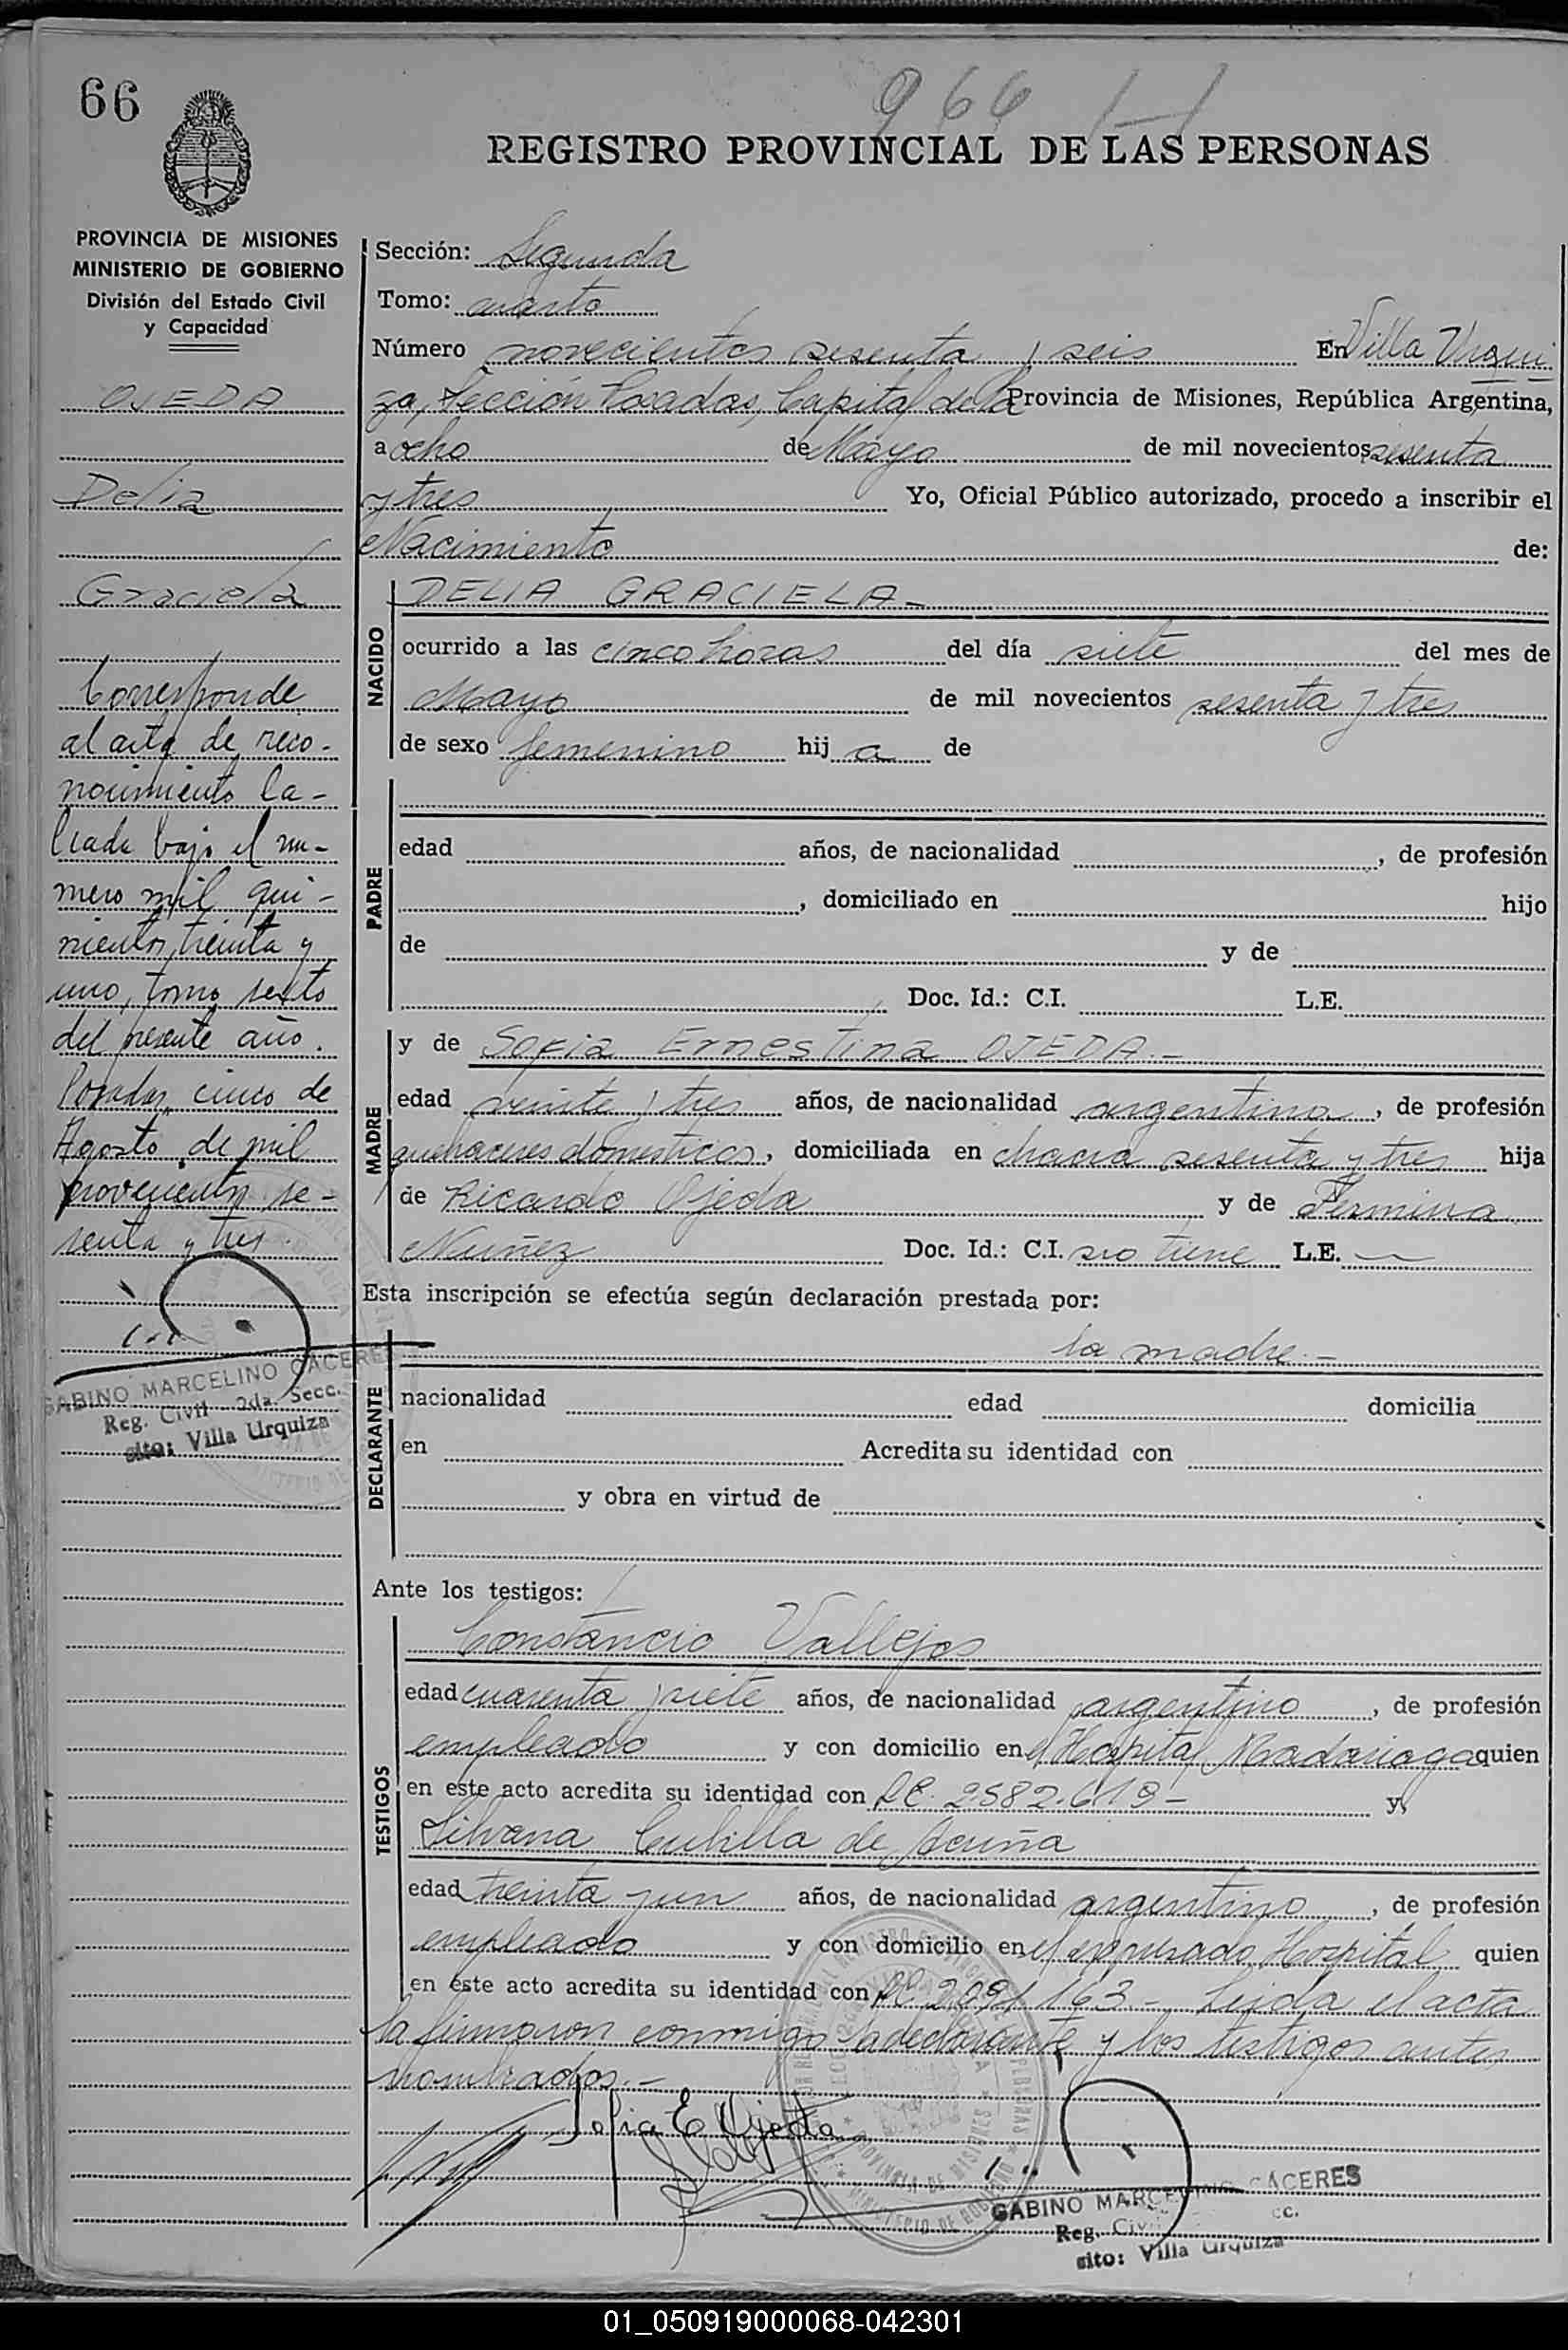 66
966
REGISTRO PROVINCIAL DE LAS PERSONAS
PROVINCIA DE MISIONES
MINISTERIO DE GOBIERNO
División del Estado Civil
y Capacidad
OJEDA
Delia
Graciela
Corresponde
al acta de reco-
nocimiento la-
brada bajo el nu-
mero mil qui-
nientos treinta y
uno, tomo sexto
del presente año.
Posadas, cinco de
Agosto de mil
novecientos se-
senta y tres.
GABINO MARCELINO CACERES
Reg. Civil 2da. Secc.
sito: Villa Urquiza
Sección: Segunda
Tomo: cuarto
Número novecientos sesenta y seis En Villa Urqui
za, Sección Posadas, Capital de la Provincia de Misiones, República Argentina,
a ocho de Mayo de mil novecientos sesenta
y tres Yo, Oficial Público autorizado, procedo a inscribir el
Nacimiento de:
NACIDO
DELIA GRACIELA.-
ocurrido a las cinco horas del día siete del mes de
Mayo de mil novecientos sesenta y tres
de sexo femenino hij a de
PADRE
edad años, de nacionalidad , de profesión
, domiciliado en hijo
de y de
Doc. Id.: C.I. L.E.
MADRE
y de Sofia Ernestina OJEDA.-
edad veinte y tres años, de nacionalidad argentina, de profesión
quehaceres domesticos, domiciliada en chacra sesenta y tres hija
de Ricardo Ojeda y de Fermina
Nuñez Doc. Id.: C.I. no tiene L.E. —
Esta inscripción se efectúa según declaración prestada por:
DECLARANTE
la madre.-
nacionalidad edad domicilia
en Acredita su identidad con
y obra en virtud de
Ante los testigos:
TESTIGOS
Constancio Vallejos
edad cuarenta y siete años, de nacionalidad argentino, de profesión
empleado y con domicilio en el Hospital Madariaga quien
en este acto acredita su identidad con LE. 2.582.619- y
Silvana Cubilla de Acuña
edad treinta y un años, de nacionalidad argentino, de profesión
empleado y con domicilio en el expresado Hospital quien
en este acto acredita su identidad con LC 2.091.163.- Leida el acta
la firmaron conmigo la declarante y los testigos antes
nombrados.-
Sofia E Ojeda
GABINO MARCELINO CACERES
Reg. Civil
sito: Villa Urquiza
01_050919000068-042301